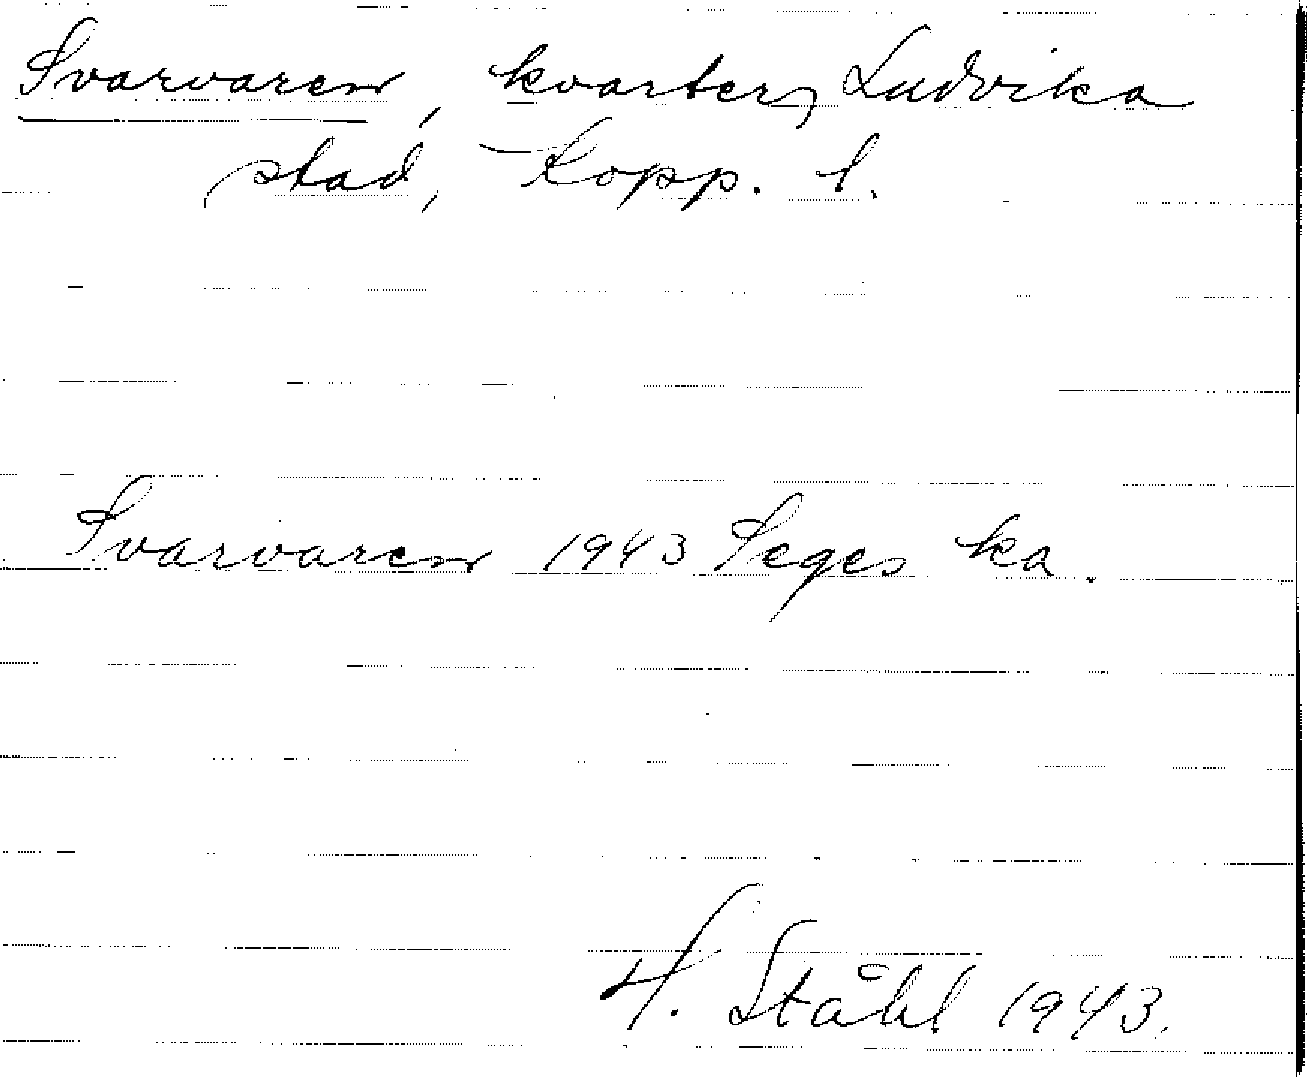 Svarvaren, kvarter, Ludvika
stad, Kopp. l.
Svarvaren 1943 Seges ka.
H. Ståhl 1943.